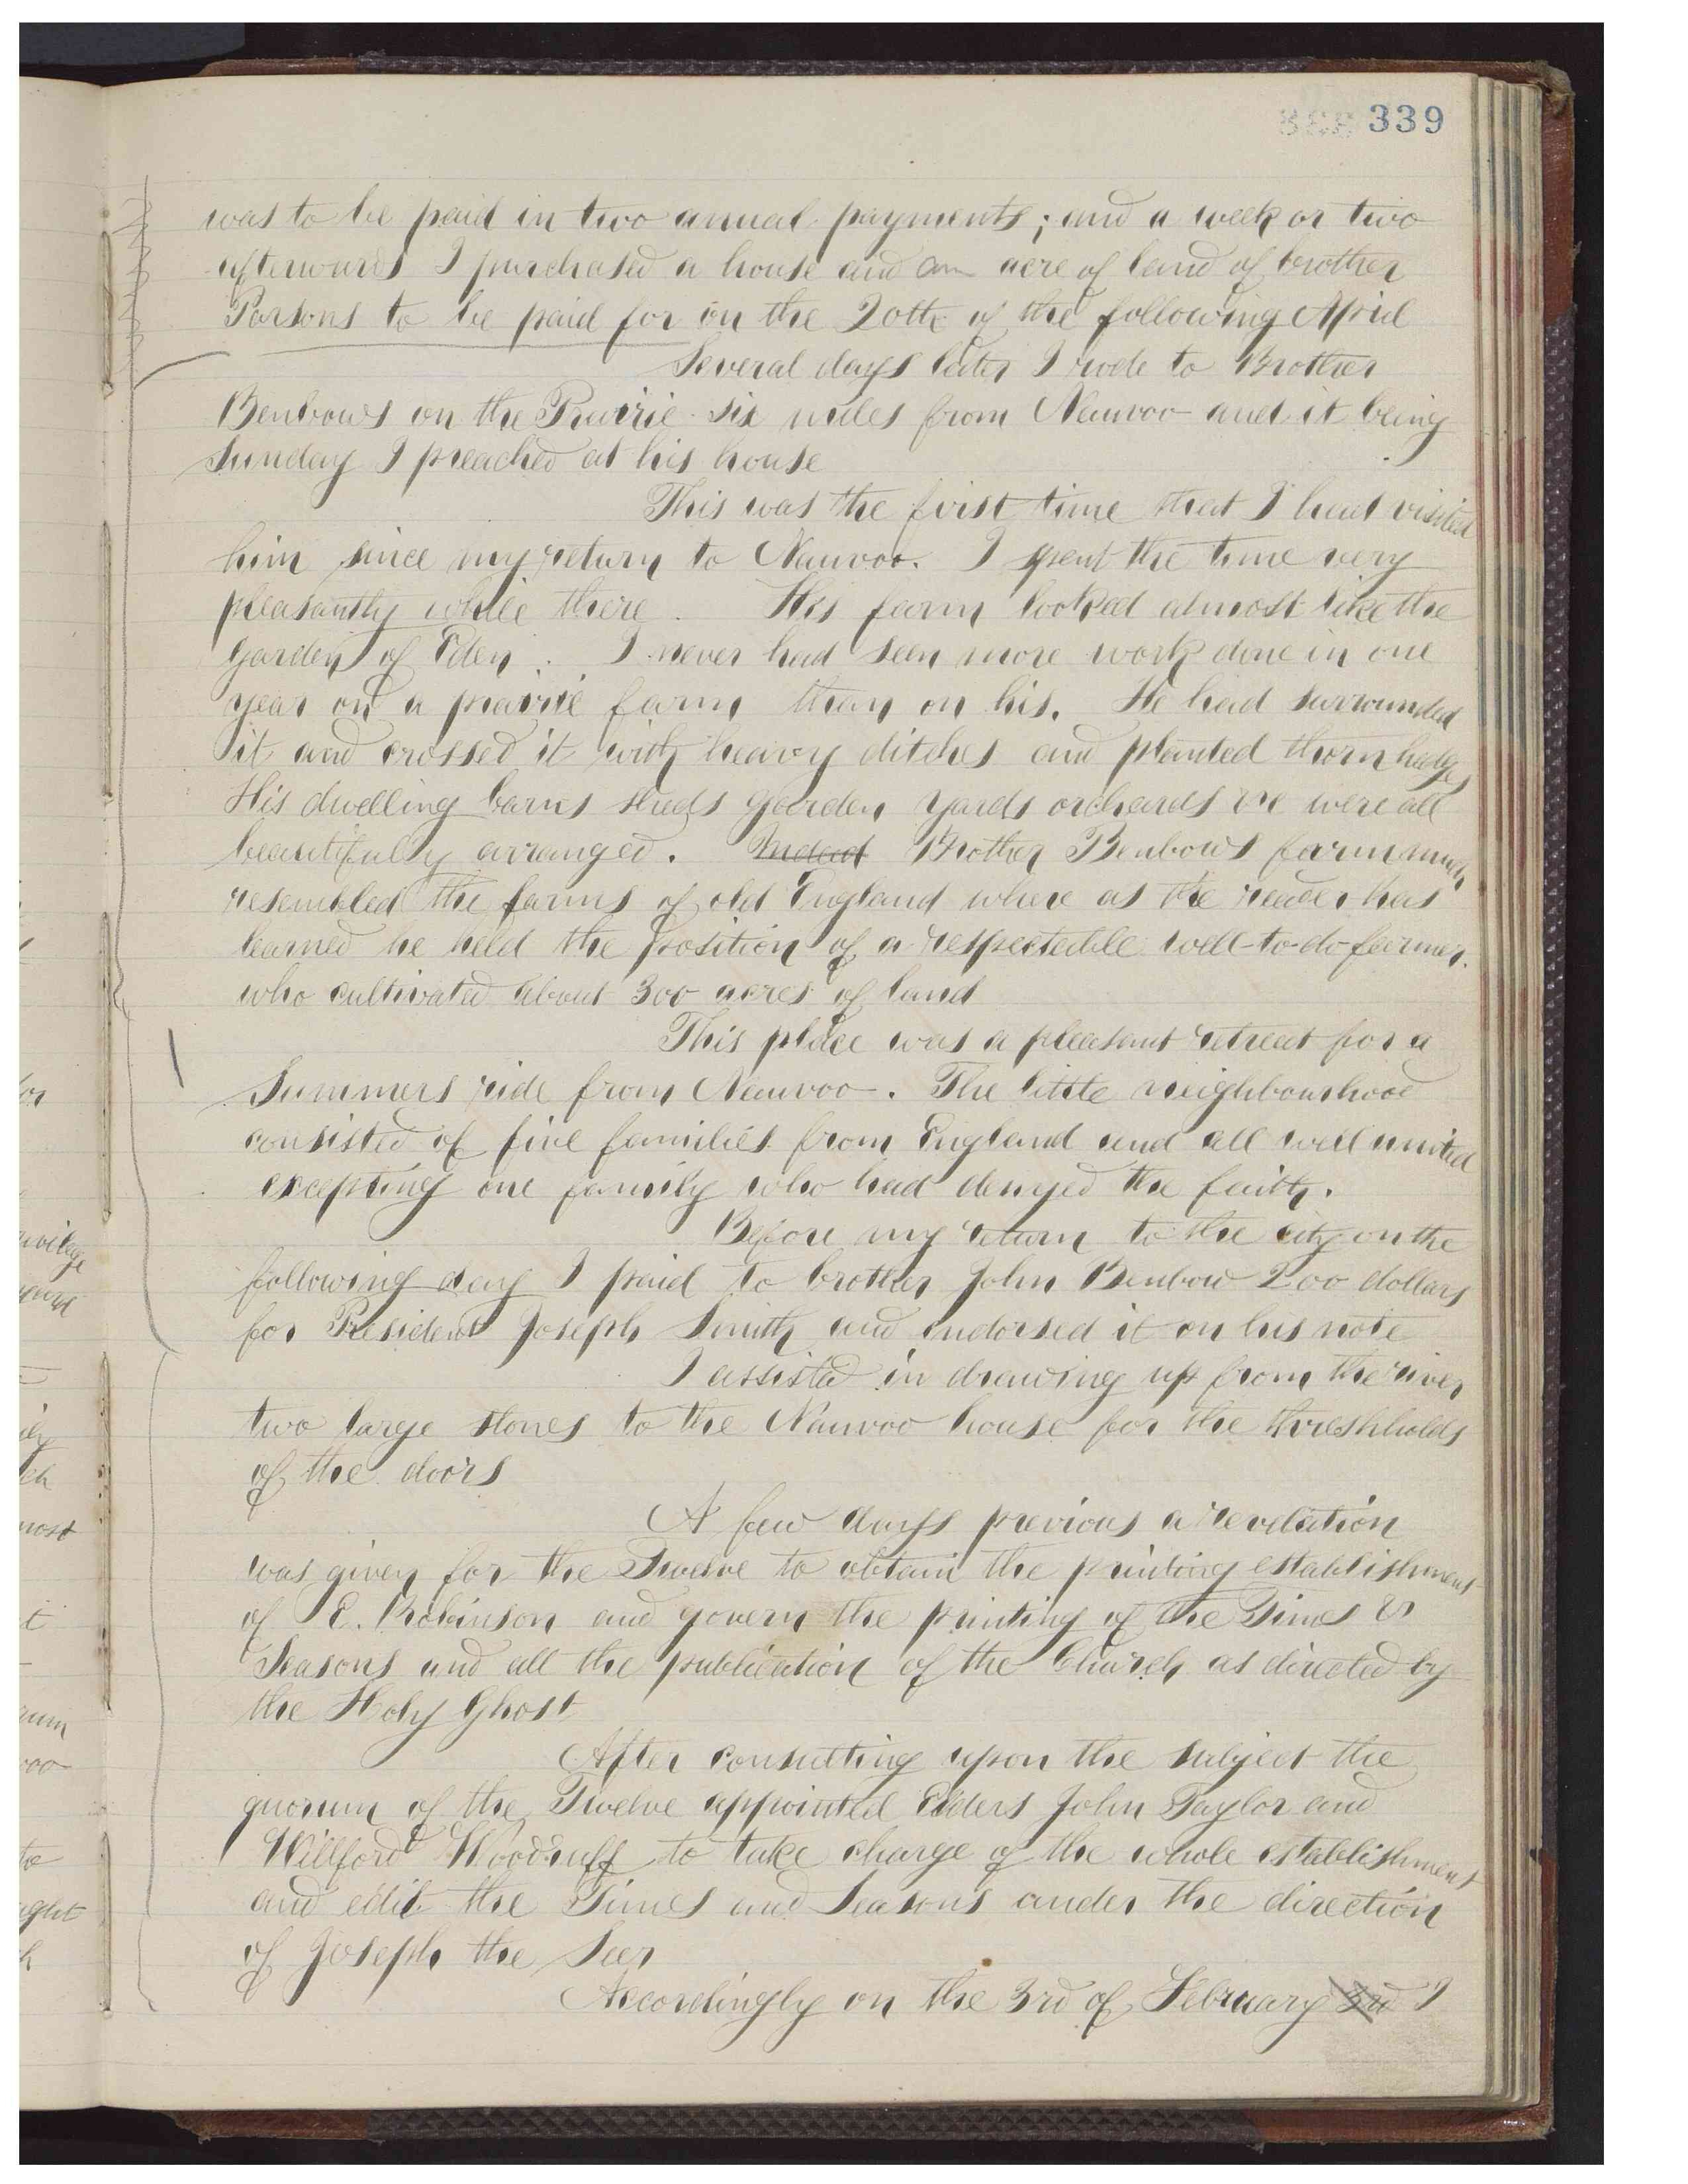 339
was to be paid in two annual payments; and a week or two
afterwards I purchased a house and an acre of land of brother
Parsons to be paid for on the 20th of the following April
Several days later I rode to Brother
Benbows on the Prairie six miles from Nauvoo and it being
Sunday I preached at his house
This was the first time that I had visited
him since my return to Nauvoo. I spent the time very
pleasantly while there. His farm looked almost like the
garden of Eden. I never had seen more work done in one
year on a prairie farm than on his. He had surrounded
it and crossed it with heavy ditches and planted thorn hedges
His dwelling barns sheds garden yards orchards &c were all
beautifully arranged. Indeed Brother Benbows farm much
resembled the farms of old England where as the reader has
learned he held the position of a respectable well-to-do farmer.
who cultivated about 300 acres of land
This place was a pleasant retreat for a
Summers ride from Nauvoo. The little neighbourhood
consisted of five families from England and all well united
excepting one family who had denyed the faith.
Before my return to the city on the
following day I paid to brother John Benbow 200 dollars
for President Joseph Smith and endorsed it on his note
I assisted in drawing up from the river
two large stones to the Nauvoo house for the threshholds
of the doors
A few days previous a revelation
was given for the Twelve to obtain the printing establishment
of E. Robinson and govern the printing of the Times &
Seasons and all the publication of the Church as directed by
the Holy Ghost
After consulting upon the subject the
quorum of the Twelve appointed Elders John Taylor and
Willford Woodruff to take charge of the whole establishment
and edit the Times and Seasons under the direction
of Joseph the Seer
Accordingly on the 3rd of February 3rd I